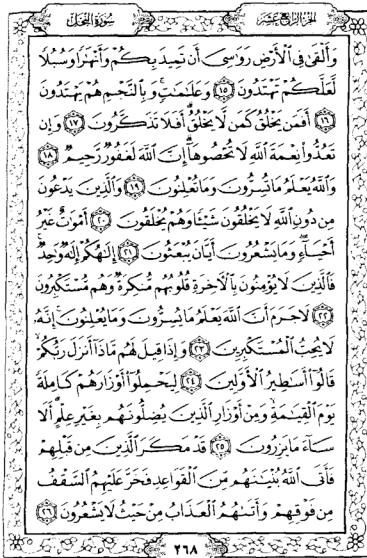 الجزء الرابع عشر
سورة النحل
وَأَلْقَىٰ فِي ٱلْأَرْضِ رَوَٰسِيَ أَن تَمِيدَ بِكُمْ وَأَنْهَٰرًا وَسُبُلًا
لَّعَلَّكُمْ تَهْتَدُونَ ١٥ وَعَلَٰمَٰتٍ ۚ وَبِٱلنَّجْمِ هُمْ يَهْتَدُونَ
١٦ أَفَمَن يَخْلُقُ كَمَن لَّا يَخْلُقُ ۗ أَفَلَا تَذَكَّرُونَ ١٧ وَإِن
تَعُدُّوا۟ نِعْمَةَ ٱللَّهِ لَا تُحْصُوهَآ ۗ إِنَّ ٱللَّهَ لَغَفُورٌ رَّحِيمٌ ١٨
وَٱللَّهُ يَعْلَمُ مَا تُسِرُّونَ وَمَا تُعْلِنُونَ ١٩ وَٱلَّذِينَ يَدْعُونَ
مِن دُونِ ٱللَّهِ لَا يَخْلُقُونَ شَيْـًٔا وَهُمْ يُخْلَقُونَ ٢٠ أَمْوَٰتٌ غَيْرُ
أَحْيَآءٍ ۖ وَمَا يَشْعُرُونَ أَيَّانَ يُبْعَثُونَ ٢١ إِلَٰهُكُمْ إِلَٰهٌ وَٰحِدٌ ۚ
فَٱلَّذِينَ لَا يُؤْمِنُونَ بِٱلْـَٔاخِرَةِ قُلُوبُهُم مُّنكِرَةٌ وَهُم مُّسْتَكْبِرُونَ
٢٢ لَا جَرَمَ أَنَّ ٱللَّهَ يَعْلَمُ مَا يُسِرُّونَ وَمَا يُعْلِنُونَ ۚ إِنَّهُۥ
لَا يُحِبُّ ٱلْمُسْتَكْبِرِينَ ٢٣ وَإِذَا قِيلَ لَهُم مَّاذَآ أَنزَلَ رَبُّكُمْ ۙ
قَالُوٓا۟ أَسَٰطِيرُ ٱلْأَوَّلِينَ ٢٤ لِيَحْمِلُوٓا۟ أَوْزَارَهُمْ كَامِلَةً
يَوْمَ ٱلْقِيَٰمَةِ ۙ وَمِنْ أَوْزَارِ ٱلَّذِينَ يُضِلُّونَهُم بِغَيْرِ عِلْمٍ ۗ أَلَا
سَآءَ مَا يَزِرُونَ ٢٥ قَدْ مَكَرَ ٱلَّذِينَ مِن قَبْلِهِمْ
فَأَتَى ٱللَّهُ بُنْيَٰنَهُم مِّنَ ٱلْقَوَاعِدِ فَخَرَّ عَلَيْهِمُ ٱلسَّقْفُ
مِن فَوْقِهِمْ وَأَتَىٰهُمُ ٱلْعَذَابُ مِنْ حَيْثُ لَا يَشْعُرُونَ ٢٦
٢٦٨